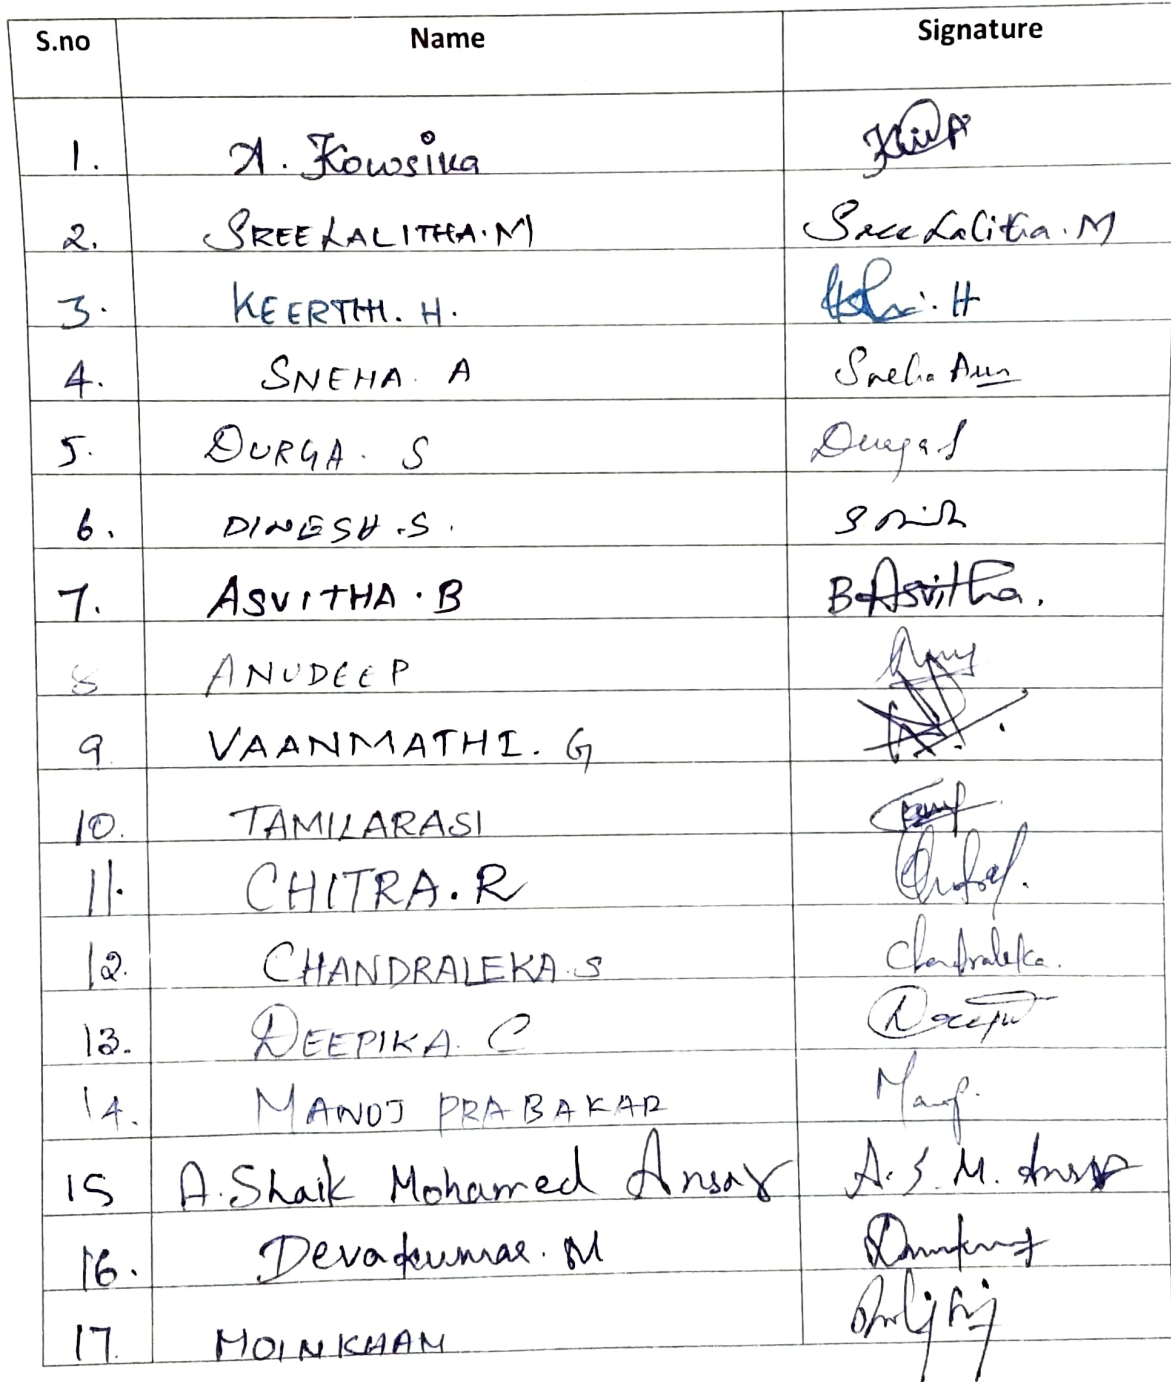 S.no Name Signature
1. A. Kowsika
2. SREE LALITHA.M Sree Lalitha.M
3. KEERTHI. H. H
4. SNEHA. A Sneha Arun
5. DURGA. S Durga S
6. DINESH.S.
7. ASVITHA.B B.Asvitha.
8 ANUDEEP
9 VAANMATHI. G
10. TAMILARASI
11. CHITRA.R
12. CHANDRALEKA.S Chandraleka.
13. DEEPIKA. C
14. MANOJ PRABAKAR
15 A.Shaik Mohamed Ansar A.S.M. Ansar
16. Devakumar. M
17. MOINKHAN